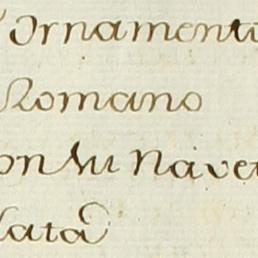 Ornamento
Romano
on su Nave
lata